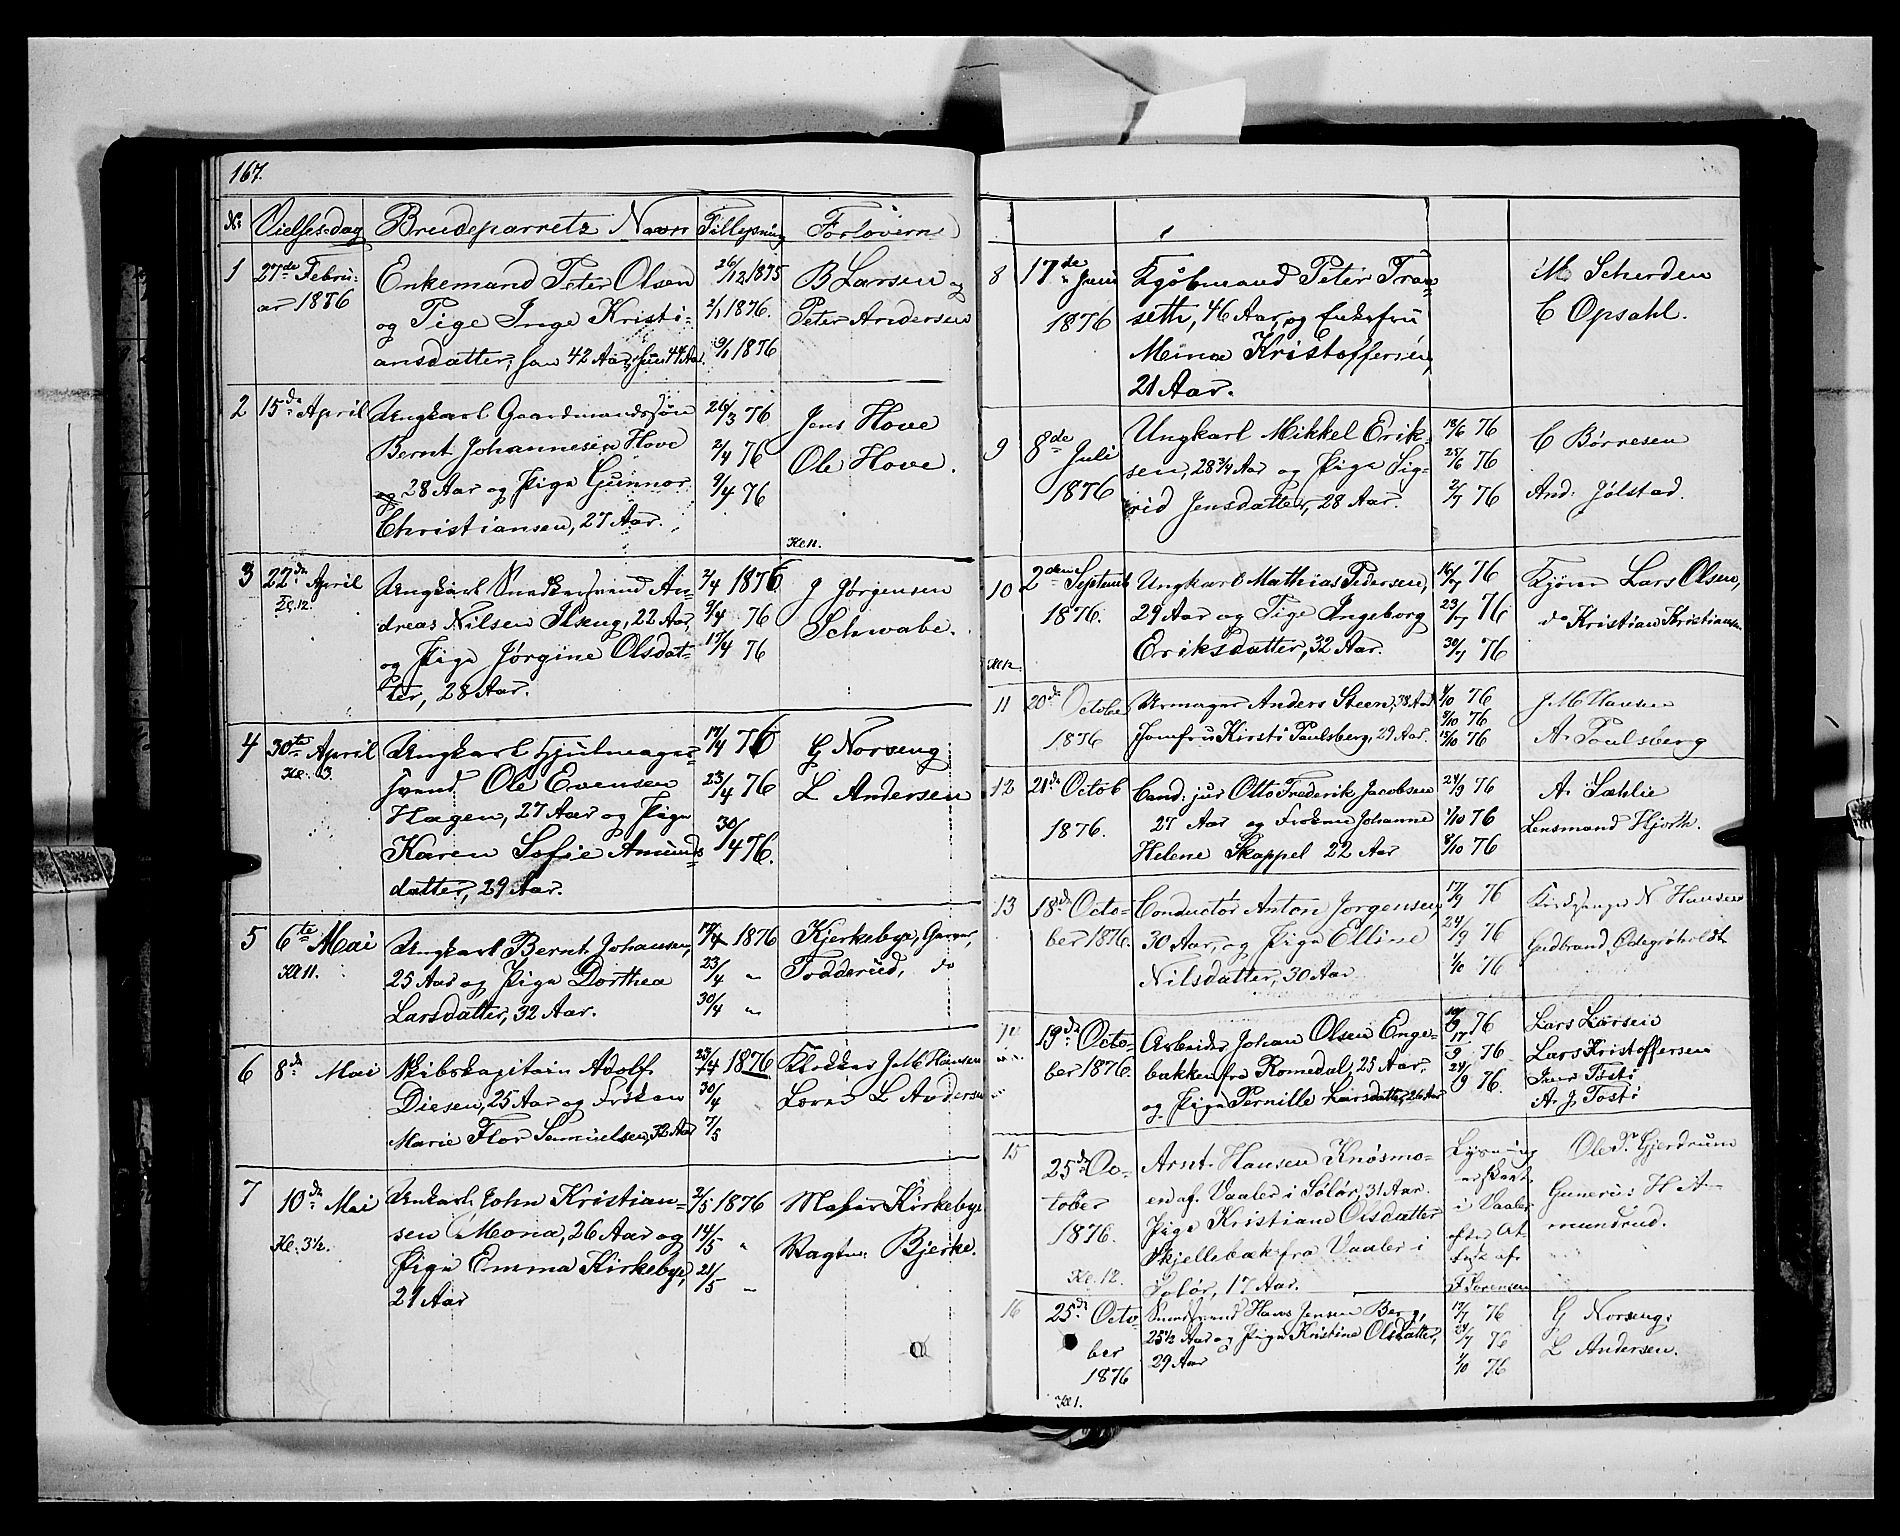 167.
No Vielsesdag Brudeparrets Navn Tillysning Forlovere
1 27de Febru-
ar 1876
Enkemand Peter Olsen
og Pige Inge Kristi-
ansdatter, han 42 Aar, hun 44 Aar.
26/12 1875
2/1 1876.
9/1 1876
B Larsen og
Peter Andersen
2 15de April
Ungkarl Gaardmandssøn
Bernt Johannesen Hove
og 28 Aar og Pige Gunnor
Christiansen, 27 Aar.
26/3 76
2/4 76
9/4 76
Jens Hove
Ole Hove.
Kl 11.
3 22de April
Kl. 12.
Ungkarl Snedkersvend An-
dreas Nilsen Ilseng, 22 Aar,
og Pige Jørgine Olsdat-
ter, 28 Aar.
2/4 1876
9/4 76
17/4 76
J Jørgensen
Schwabe.
4 30te April
Kl. 3.
Ungkarl Hjulmager-
svend Ole Evensen
Hagen, 27 Aar og Pige
Karen Sofie Amunds-
datter, 29 Aar.
17/4 76
23/4 76
30/4 76.
G Norseng
L Andersen
5 6te Mai
Kl 11.
Ungkarl Bernt Johansen,
25 Aar og Pige Dorthea
Larsdatter, 32 Aar.
17/4 1876
23/4 "
30/4 "
Kjerkebye, Garver,
Todderud, do
6 8de Mai
Skibskapitain Adolf
Diesen, 25 Aar og Frøken
Marie Flor Samuelsen, 32 Aar
23/4 1876
30/4
7/5
Klokker J M Hansen
Lærer L Andersen
7 10de Mai
Kl. 3½.
Unkarl John Kristian-
sen Mona, 26 Aar og
Pige Emma Kirkebye,
21 Aar
2/5 1876
14/5 "
21/5 "
Kirkebye
Vagtm: Bjerke.
8 17de Juni
1876
Kjøbmand Peter Tran-
seth, 46 Aar, og Enkefru
Mina Kristoffersen,
21 Aar.
M Scherden
C Opsahl.
9 8de Juli
1876
Ungkarl Mikkel Erik-
sen, 28 3/4 Aar og Pige Sig-
rid Jensdatter, 28 Aar.
18/6 76
25/6 76
2/7 76
C Børresen
And: Jølstad.
10 2den Septemb
1876.
Kl 12.
Ungkarl Mathias Pedersen,
29 Aar og Pige Ingeborg
Eriksdatter, 32 Aar.
16/7 76
23/7 76
30/7 76
Lars Olsen,
do Kristian Kristiansen.
11 20de October
1876
Urmager Anders Steen, 38 Aar
Jomfru Kirsti Paulsberg, 29 Aar.
1/10 76
8/10 76
15/10 76
J M Hansen
A. Paulsberg
12 21de Octob
1876.
Cand: jur Otto Frederik Jacobsen
27 Aar og Frøken Johanne
Helene Skappel 22 Aar
24/9 76
1/10 76
8/10 76
A. Sæhlie
Lensmand Hjorth.
13 18de Octo-
ber 1876.
Conductør Anton Jørgensen,
30 Aar, og Pige Elline
Nilsdatter, 30 Aar
17/9 76
24/9 76
1/10 76
N Hansen
Gudbrand Ødegrøholdt
14 19de Octo-
ber 1876.
Arbeider Johan Olsen Enge-
bakken fra Romedal, 25 Aar.
og Pige Pernille Larsdatter, 26 Aar
10/9 76
17/9 76
24/9 76.
Lars Larsen
Lars Kristoffersen
Iver Tosti
A. J. Tosti
15 25de Oc-
tober
1876.
Kl. 12.
Arnt Hansen Knøsmo-
en af Vaaler i Solør, 31 Aar.
Pige Kristiane Olsdatter
Skjellebæk fra Vaaler i
Solør, 17 Aar.
Lysning
er skeet
i Vaaler
efter At-
test af
F Sørensen
Ole P. Gjerdrum
Gunerius H A-
mundrud.
16 25de Octo-
ber
1876
Kl 1.
Smedsvend Hans Jensen Berg,
25½ Aar og Pige Kristine Olsdatter,
29 Aar
17/7 76
24/7 76
1/10 76
G Norseng.
L Andersen.